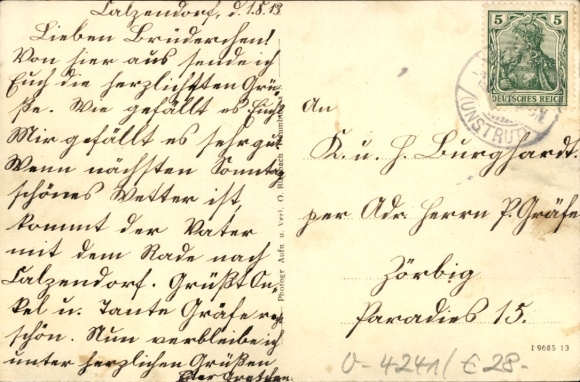 Calzendorf, d. 1.8.13.
Lieben Brüderchen!
Von hier aus sende ich
Euch die herzlichsten Grü-
ße. Wie gefällt es Euch?
Mir gefällt es sehr gut.
Wenn nächsten Sonntag
schönes Wetter ist,
kommt der Vater
mit dem Rade nach
Calzendorf. Grüßt On-
kel u. Tante Gräfe recht
schön. Nun verbleibe ich
unter herzlichen Grüßen
Eure Gretchen
Photogr Aufn u. Verl. O.
5 5
DEUTSCHES REICH
(UNSTRUT)
An
K. u. H. Burghardt.
per Adr. Herrn P. Gräfe
Zörbig
Paradies 15.
I 9685 13
U-4241/€ 28.-